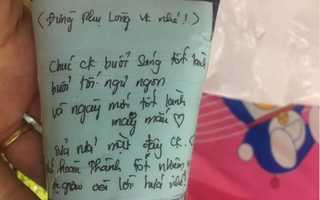 (Đừng Phụ Lòng vk nhé!)
Chúc ck buổi sáng tốt lành
buổi tối ngủ ngon
và ngày mới tốt lành
may mắn ♡
Sữa nụ mừt đây ck.
hoàn thành tốt nhiệm
với lớn nhé!